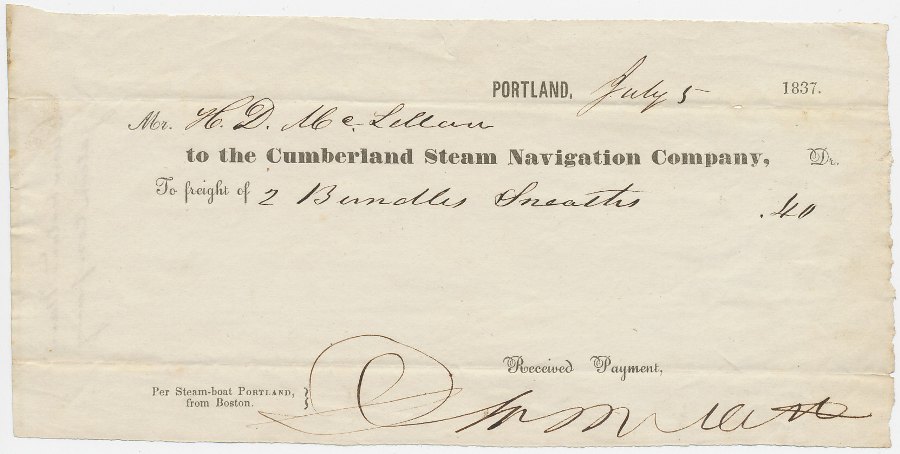 PORTLAND, July 5 1837.
Mr. H. D. McLellan
to the Cumberland Steam Navigation Company, Dr.
To freight of 2 Bundles Sneaths .40
Received Payment,
Per Steam-boat PORTLAND,
from Boston.